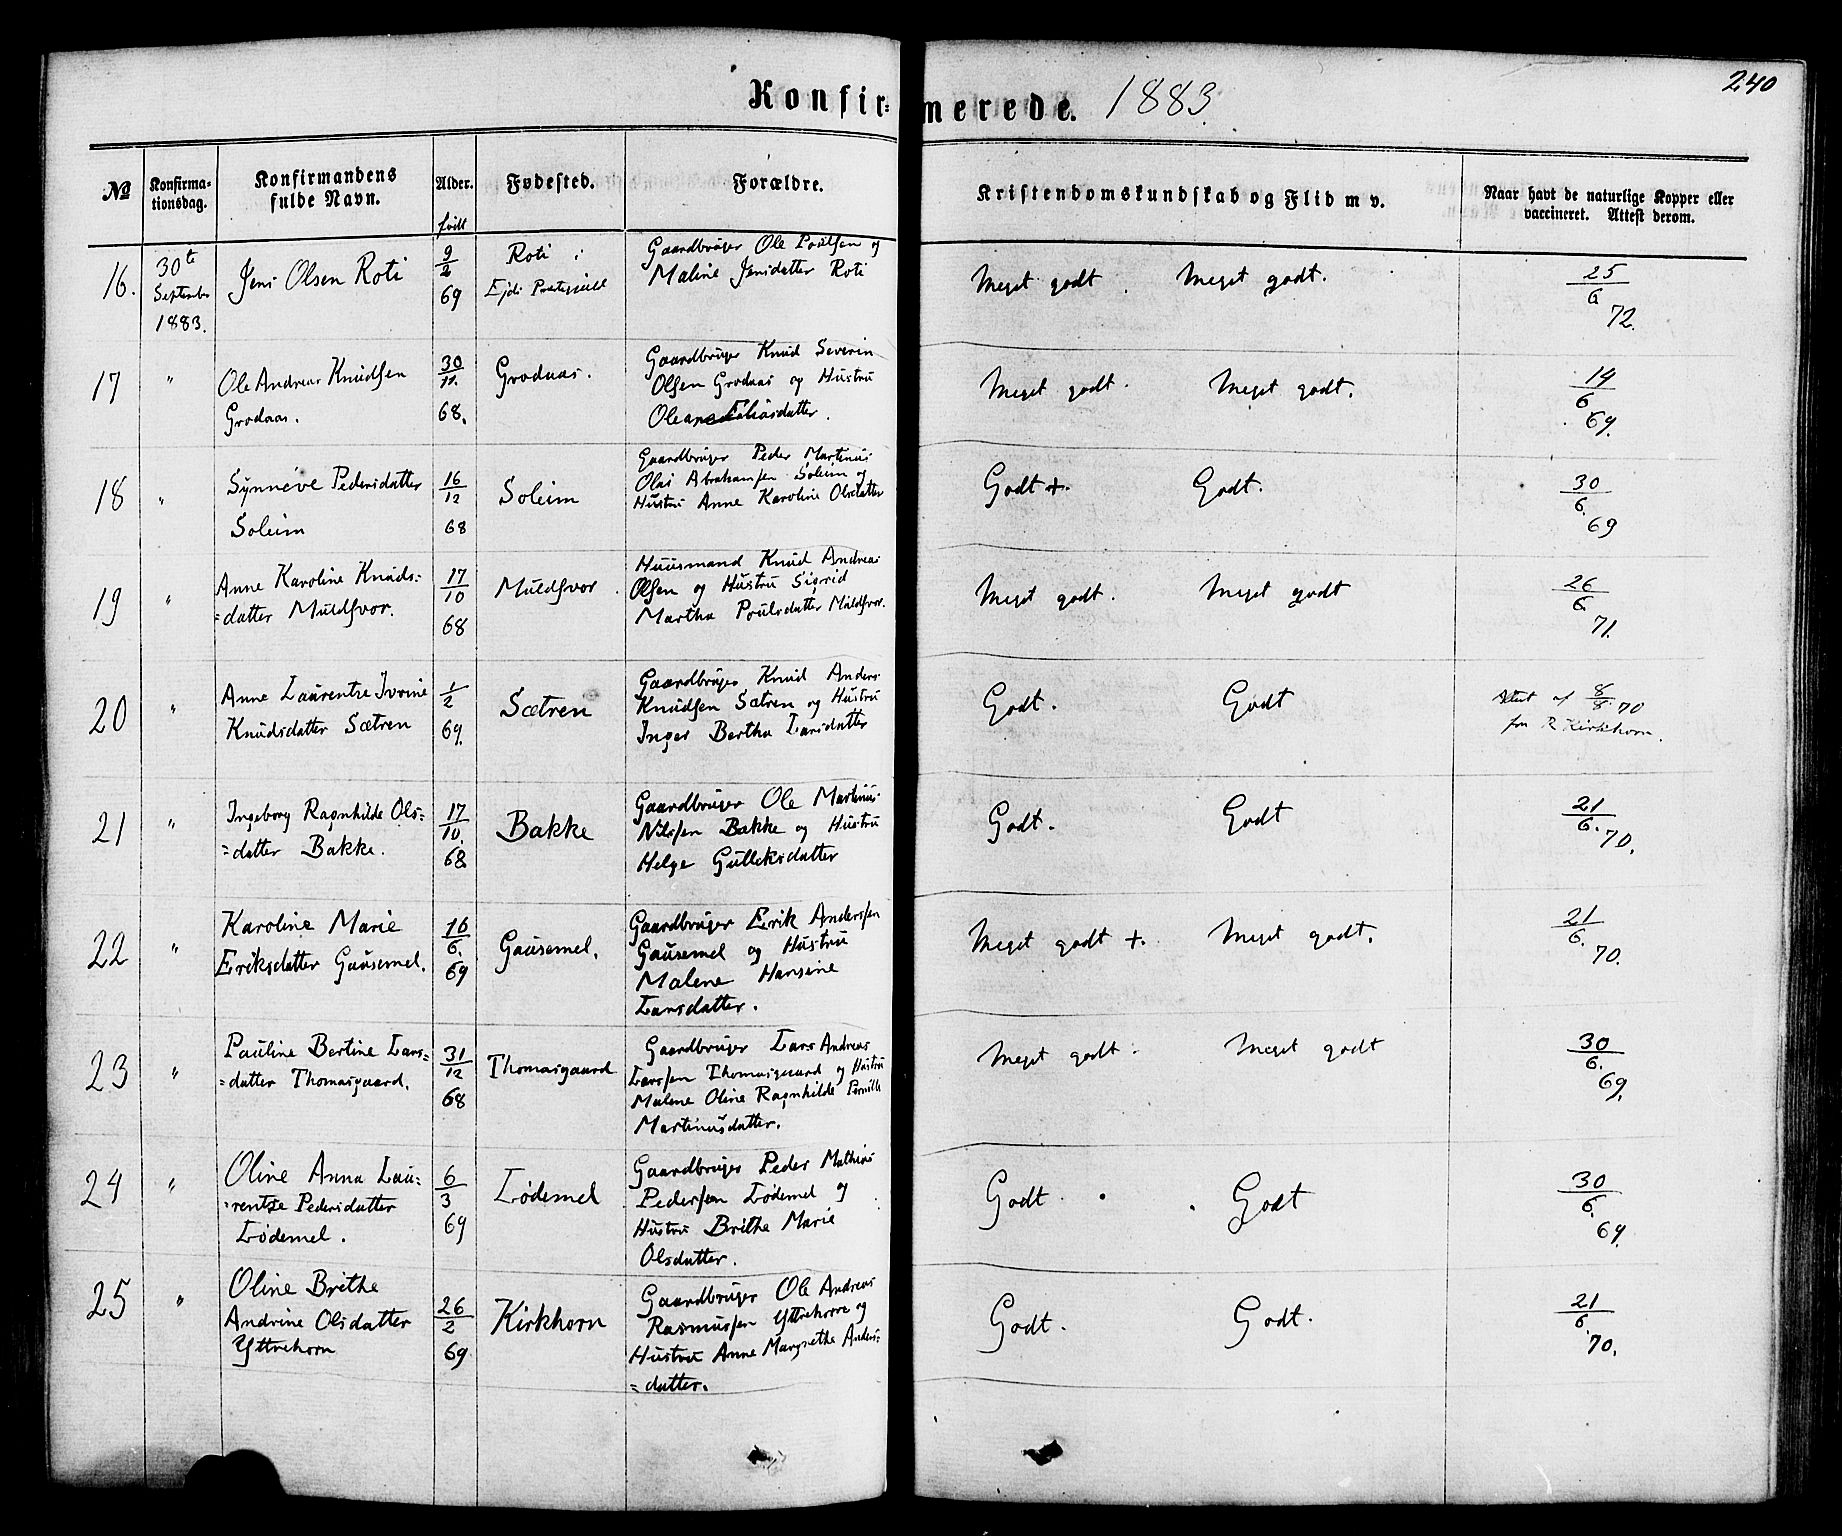 240
Konfir= merede. 1883.
No Konfirma- tionsdag. Konfirmandens fulde Navn. Alder. født Fødested. Forældre. Kristendomskundskab og Flid m v. Naar havt de naturlige Kopper eller vaccineret. Attest derom.
16. 30te September 1883. Jens Olsen Roti 9/2 69 Roti i Ejds Præstegjeld Gaardbruger Ole Poulsen og
Maline Jensdatter Roti Meget godt. Meget godt. 25/6 72.
17 " Ole Andreas Knudsen 30/11. 68. Grodaas. Gaardbruger Knud Severin
Grodaas. Olsen Grodaas og Hustru
Oleane Eliasdatter. Meget godt. Meget godt. 14/6 69.
18 " Synneve Pedersdatter 16/12 68 Soleim Gaardbruger Peder Martinus
Soleim Olai Abrahamsen Soleim og
Hustru Anne Karoline Olsdatter Godt +. Godt. 30/6. 69
19 " Anne Karoline Knuds= 17/10 68 Muldsvor. Huusmand Knud Andreas
=datter Muldsvor. Olsen og Hustru Sigrid
Martha Poulsdatter Muldsvor. Meget godt. Meget godt 26/6 71.
20 " Anne Laurentze Ivrine 1/2 69. Sætren Gaardbruger Knud Anders
Knudsdatter Sætren Knudsen Sætren og Hustru
Inger Bertha Larsdatter Godt. Godt Attest af 8/8 70
fra R Kirkhorn.
21 " Ingeborg Ragnhilde Ols= 17/10. 68 Bakke Gaardbruger Ole Martinus
=datter Bakke. Nilssen Bakke og Hustru
Helge Gulleksdatter Godt. Godt 21/6. 70.
22 " Karoline Marie 16/6. 69 Gausemel. Gaardbruger Erik Anderssen
Eriksdatter Gausemel. Gausemel og Hustru
Malene Hansine
Larsdatter. Meget godt +. Meget godt. 21/6. 70.
23 " Pauline Bertine Lars= 31/12 68 Thomasgaard Gaardbruger Lars Andreas
=datter Thomasgaard. Larssen Thomasgaard og Hustru
Malene Oline Ragnhilde Pernille
Martinusdatter. Meget godt. Meget godt 30/6. 69.
24 " Oline Anna Lau= 6/3 69 Lødemel Gaardbruger Peder Mathias
=rentze Pedersdatter Pederssen Lødemel og
Lødemel. Hustru Brithe Marie
Olsdatter. Godt. Godt 30/6. 69.
25 " Oline Brithe 26/2 69 Kirkhorn Gaardbruger Ole Andreas
Andrine Olsdatter Rasmussen Yttrehorn og
Yttrehorn Hustru Anne Margrethe Anders=
=datter. Godt. Godt. 21/6 70.